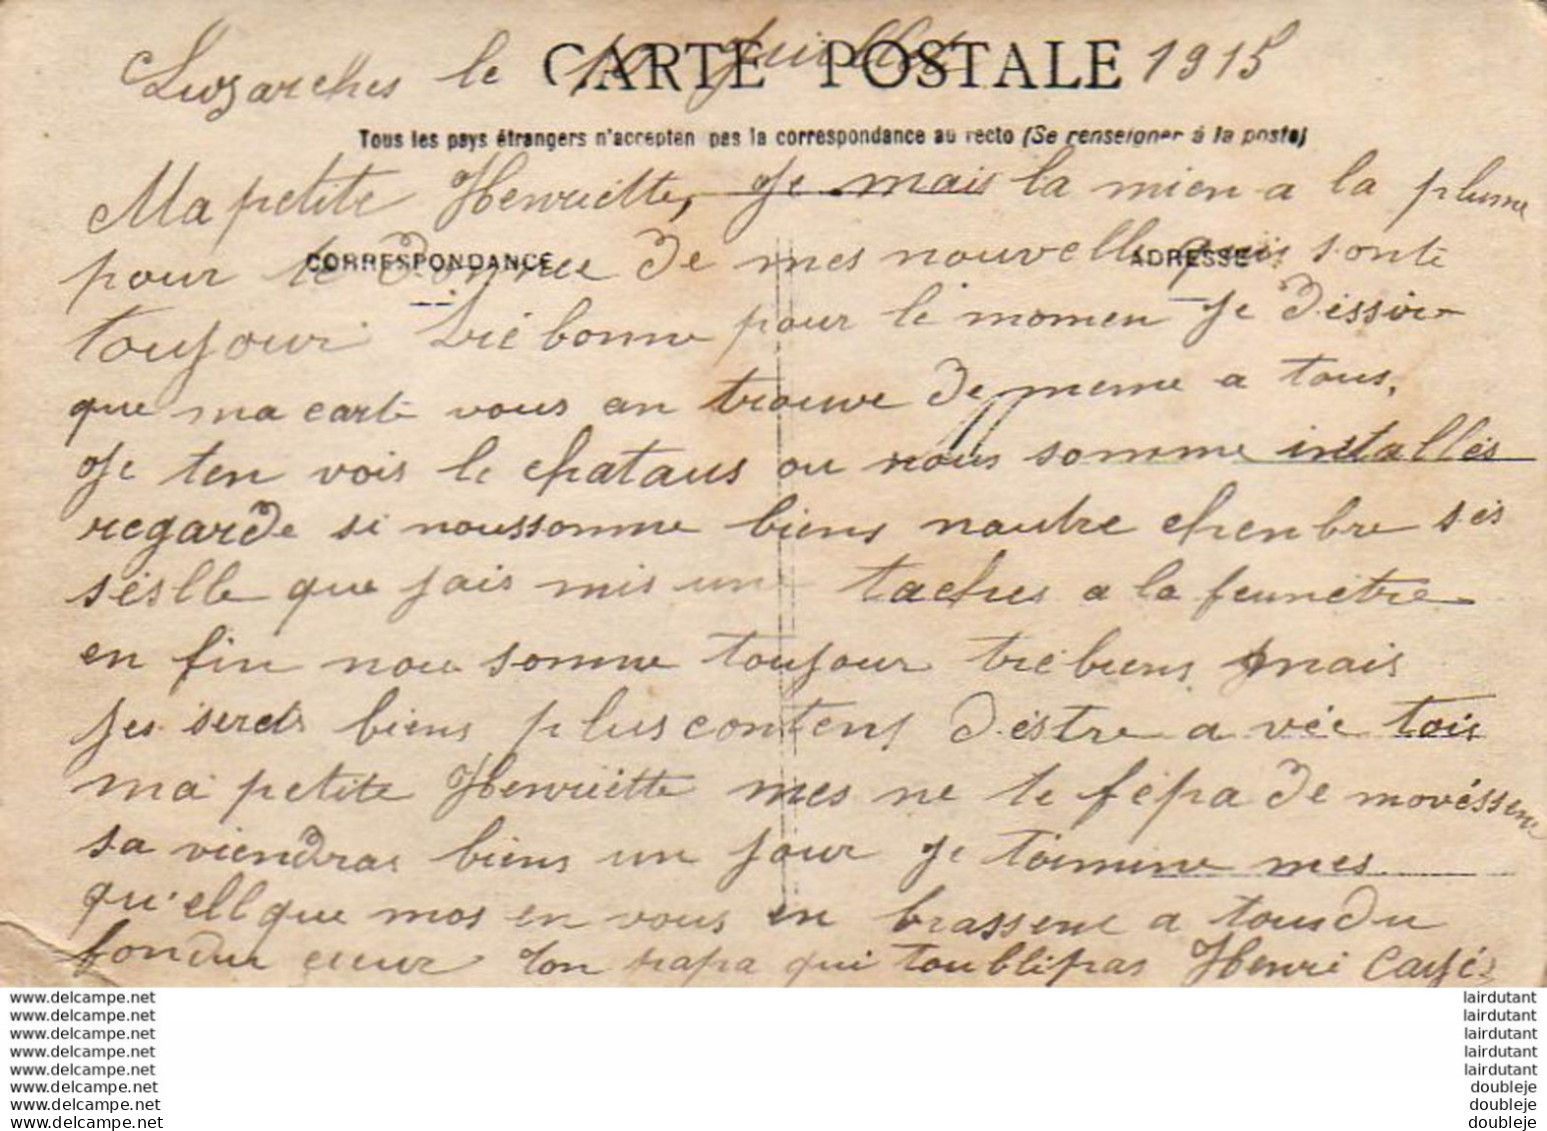 CARTE POSTALE
Luzarches le 10 Juillet 1915
Tous les pays étrangers n'accepten pas la correspondance au recto (Se renseigner à la poste)
Ma petite Henriette, Je mais la mien a la plume
CORRESPONDANCE
ADRESSE
pour te donnee de mes nouvelle quis sonte
toujour trié bonne pour le momen Je déssire
que ma carte vous an trouve de meme a tous,
Je ten vois le chataus ou nous somme intallés
regarde si noussomme biens nautre chenbre sés
séslle que jais mis une taches a la feunétre
en fin nou somme toujour trié biens mais
jes serds biens plus contens d'éstre a véc tois
ma petite Henriette mes ne te fépa de movéssene
sa viendras biens un jour Je términe mes
qu'ellque mos en vous en brassene a tousdu
fondu cuur ton papa qui toublipas Henri Cayé
www.delcampe.net
www.delcampe.net
www.delcampe.net
www.delcampe.net
www.delcampe.net
www.delcampe.net
www.delcampe.net
www.delcampe.net
lairdutant
lairdutant
lairdutant
lairdutant
lairdutant
doubleje
doubleje
doubleje